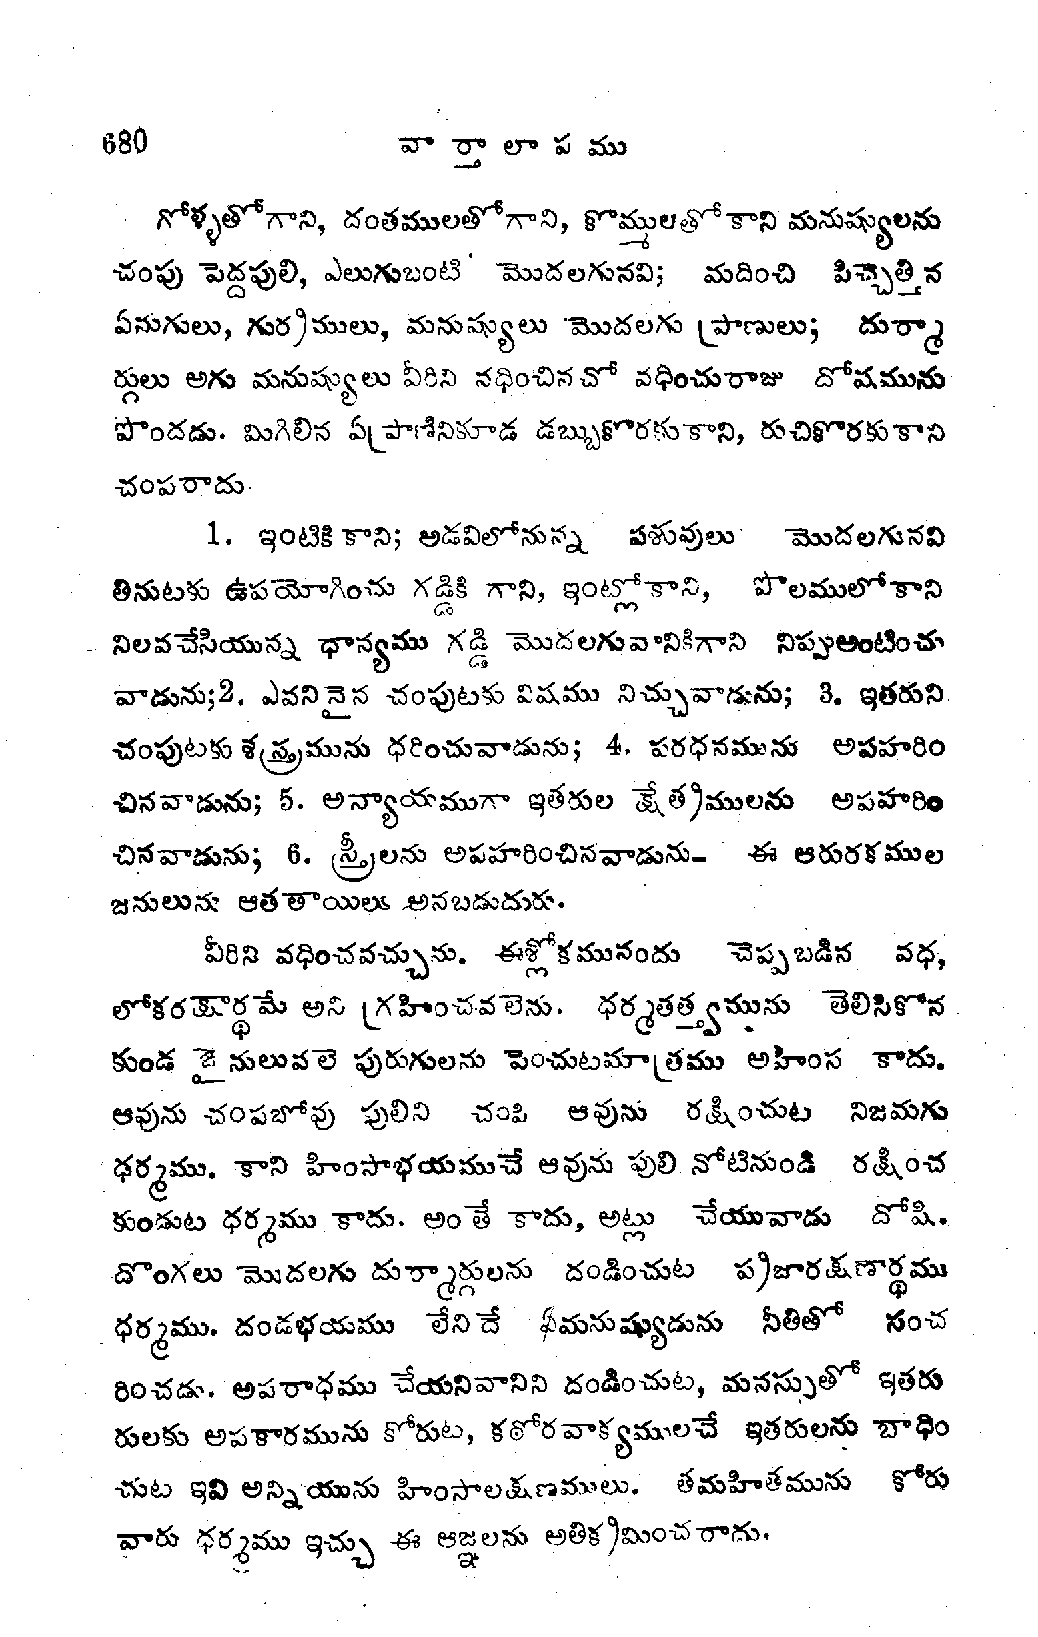 680 వార్తాలాపము
గోళ్ళతోగాని, దంతములతోగాని, కొమ్ములతోకాని మనుష్యులను
చంపు పెద్దపులి, ఎలుగుబంటి మొదలగునవి; మదించి పిచ్చెత్తిన
ఏనుగులు, గుర్రములు, మనుష్యులు మొదలగు ప్రాణులు; దుర్మా
ర్గులు అగు మనుష్యులు వీరిని నధించినచో వధించురాజు దోషమును
పొందడు. మిగిలిన ఏప్రాణినికూడ డబ్బుకొరకుకాని, రుచికొరకుకాని
చంపరాదు.
1. ఇంటికికాని; అడవిలోనున్న పశువులు మొదలగునవి
తినుటకు ఉపయోగించు గడ్డికి గాని, ఇంట్లోకాని, పొలములోకాని
నిలవచేసియున్న ధాన్యము గడ్డి మొదలగువానికిగాని నిప్పుఅంటించు
వాడును;2. ఎవనినైన చంపుటకు విషము నిచ్చువాడును; 3. ఇతరుని
చంపుటకు శస్త్రమును ధరించువాడును; 4. పరధనమును అపహరిం
చినవాడును; 5. అన్యాయముగా ఇతరుల క్షేత్రములను అపహరిం
చినవాడును; 6. స్త్రీలను అపహరించినవాడును– ఈ ఆరురకముల
జనులును ఆతతాయిలు అనబడుదురు.
వీరిని వధించవచ్చును. ఈశ్లోకమునందు చెప్పబడిన వధ,
లోకరక్షార్థమే అని గ్రహించవలెను. ధర్మతత్త్వమును తెలిసికొన
కుండ జైనులువలె పురుగులను పెంచుటమాత్రము అహింస కాదు.
ఆవును చంపబోవు పులిని చంపి ఆవును రక్షించుట నిజమగు
ధర్మము. కాని హింసాభయముచే ఆవును పులి నోటినుండి రక్షించ
కుండుట ధర్మము కాదు. అంతే కాదు, అట్లు చేయువాడు దోషి.
దొంగలు మొదలగు దుర్మార్గులను దండించుట ప్రజారక్షణార్థము
ధర్మము. దండభయము లేనిదే ఏమనుష్యుడును నీతితో సంచ
రించడు. అపరాధము చేయనివానిని దండించుట, మనస్సుతో ఇతరు
రులకు అపకారమును కోరుట, కఠోరవాక్యములచే ఇతరులను బాధిం
చుట ఇవి అన్నియును హింసాలక్షణములు. తమహితమును కోరు
వారు ధర్మము ఇచ్చు ఈ ఆజ్ఞలను అతిక్రమించరాదు.